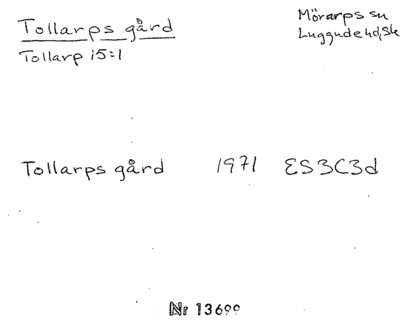 Tollarps gård
Mörarps sn
Tollarp 15:1
Luggude hd, Sk
Tollarps gård 1971 ES3C3d
Nr 13699